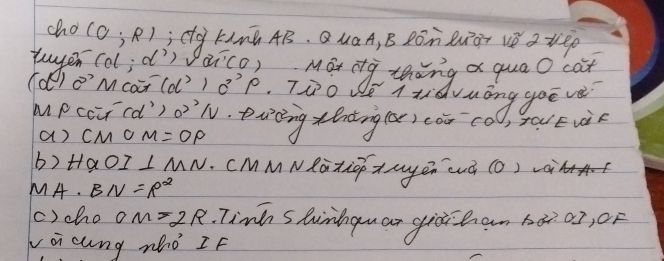 cho (O; R); đg kính AB. Qua A, B lần lượt vẽ 2 tiếp
tuyến (d; d') với (O). Một đg thẳng α qua O cắt
(d) ở M cắt (d') ở P. Từ O vẽ 1 tia vuông góc với
MP cắt (d') ở N. Đường thẳng (α) cắt (O) tại E và F
a) CM OM = OP
b) Hạ OI ⊥ MN. CM MN là tiếp tuyến của (O) và
MA . BN = R²
c) cho OM = 2R. Tính S hình quạt giới hạn bởi OI, OF
và cung nhỏ IF